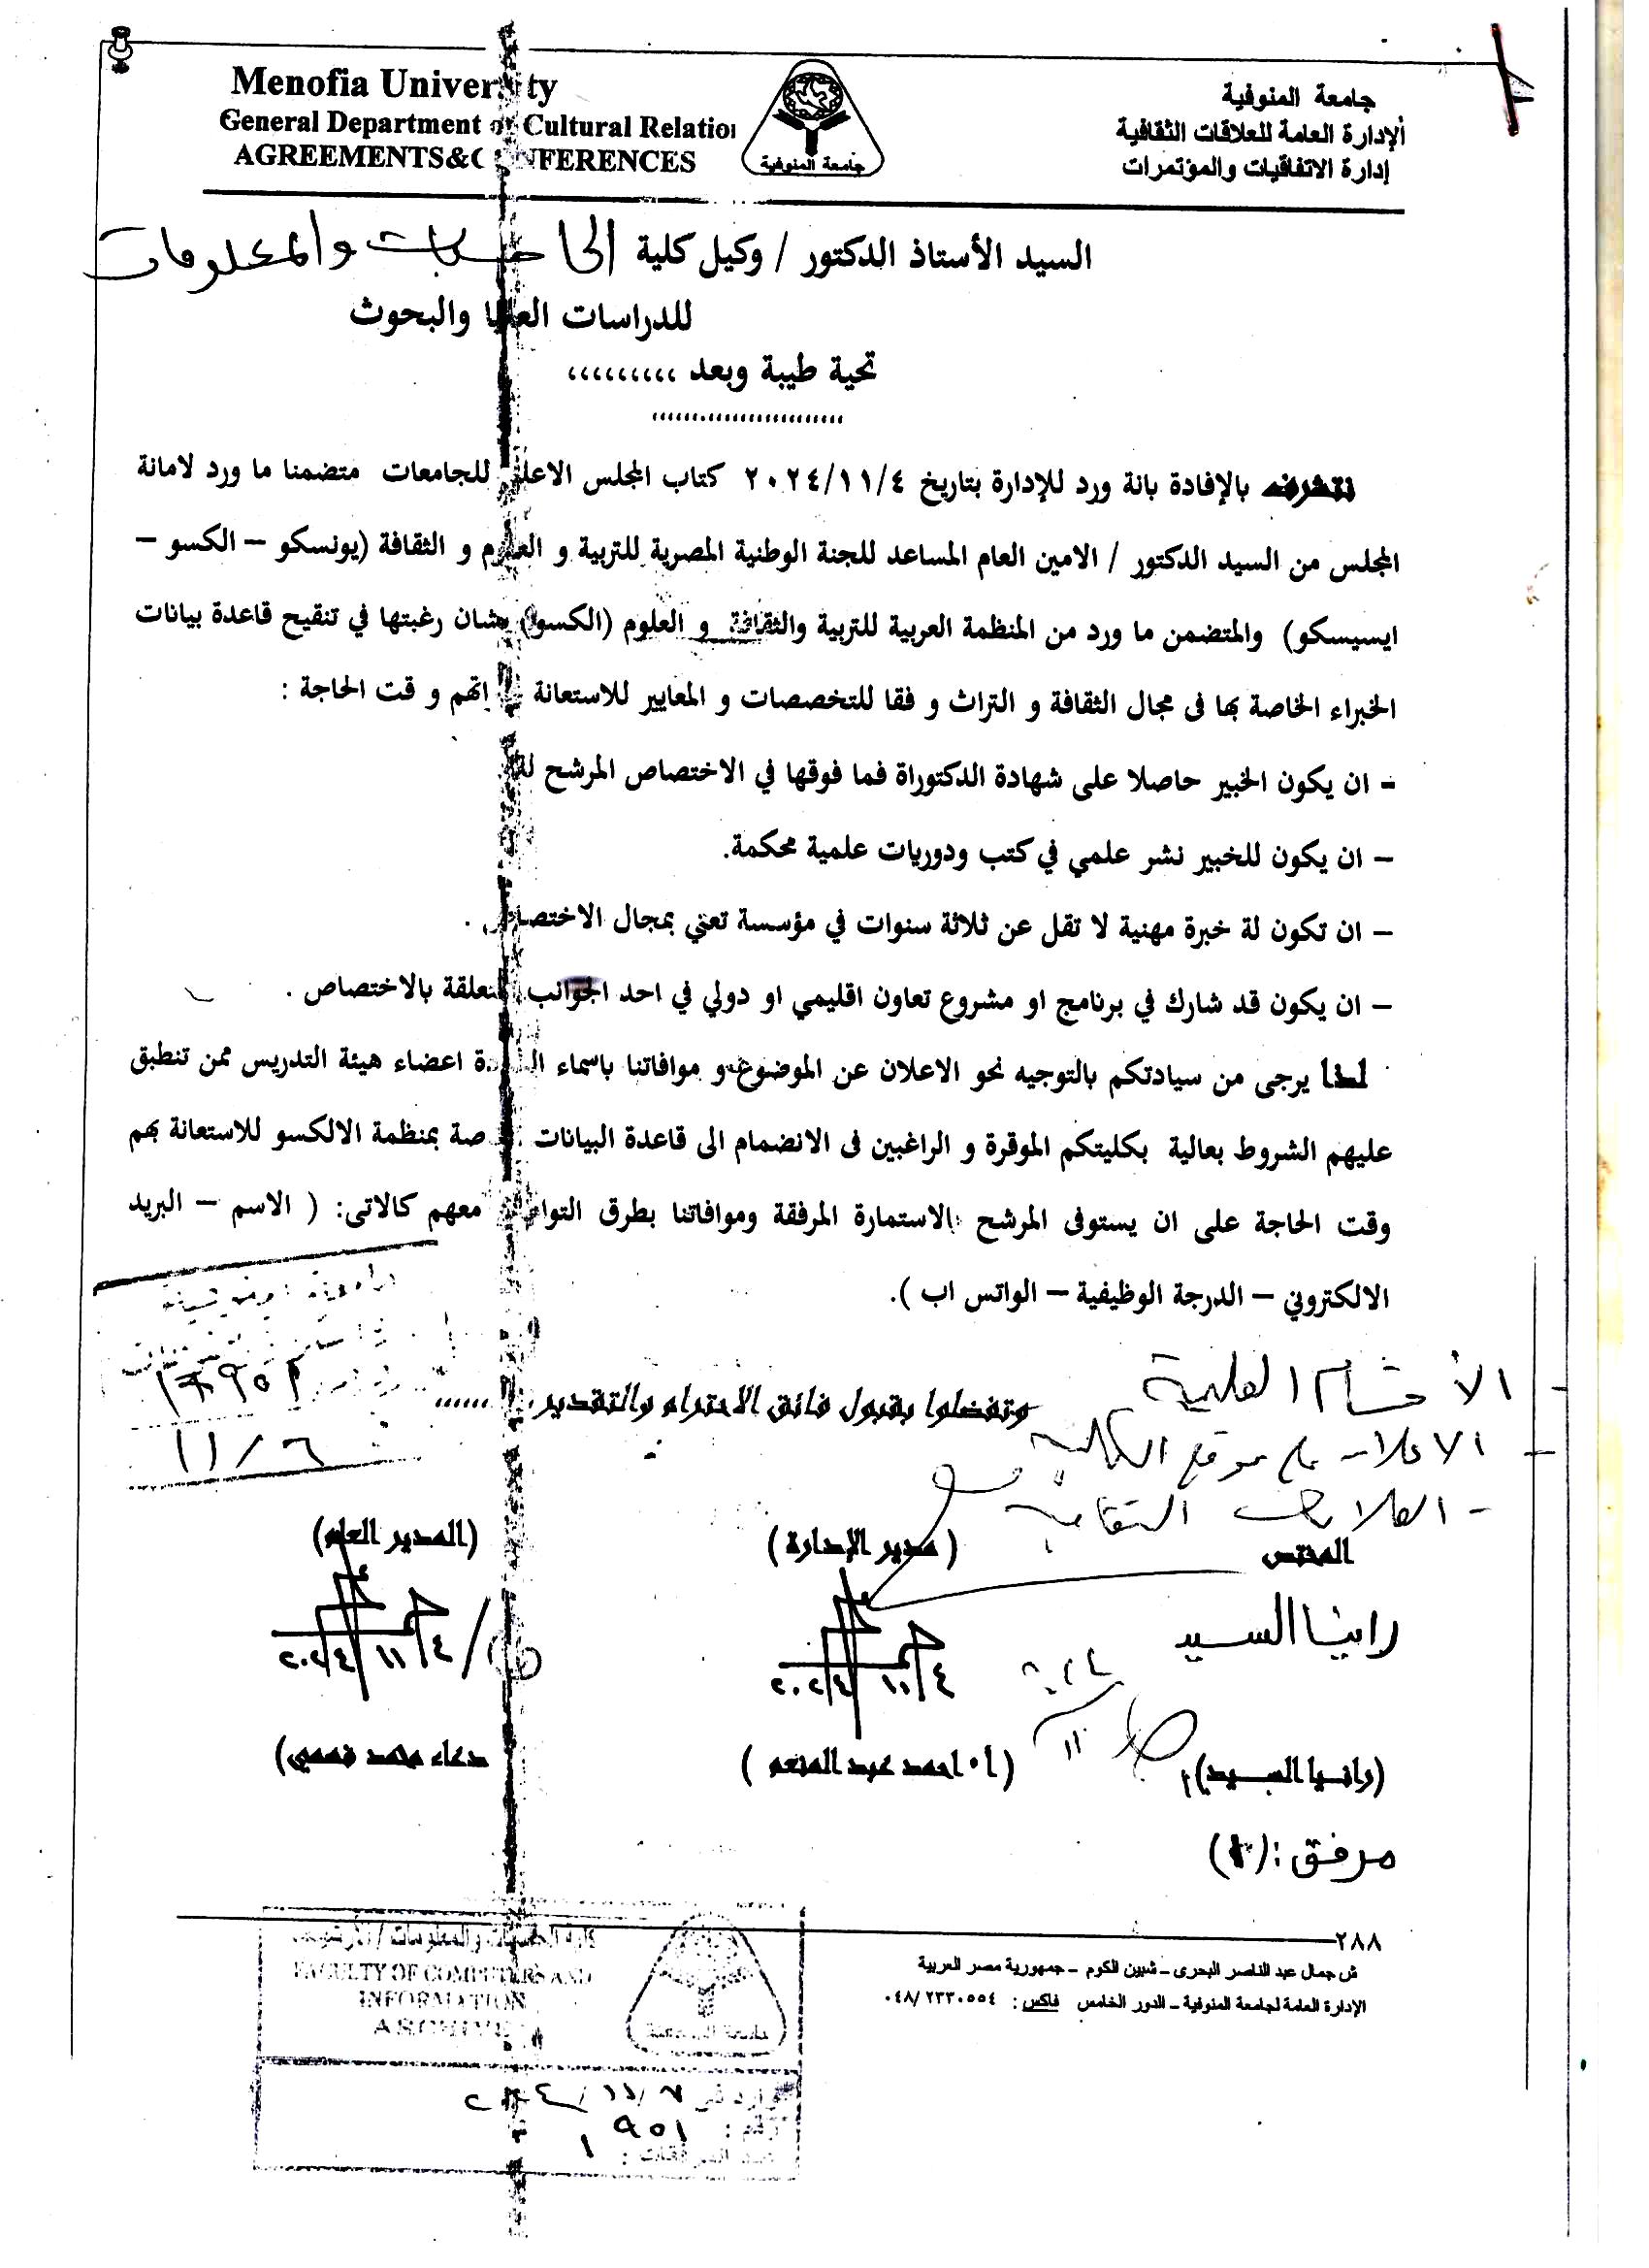 Menofia University
General Department of Cultural Relation
AGREEMENTS&CONFERENCES
جامعة المنوفية
جامعة المنوفية
الإدارة العامة للعلاقات الثقافية
إدارة الاتفاقيات والمؤتمرات
السيد الأستاذ الدكتور / وكيل كلية الحاسبات والمعلومات
للدراسات العليا والبحوث
تحية طيبة وبعد ،،،،،،،،،
نتشرف بالإفادة بانة ورد للإدارة بتاريخ ٢٠٢٤/١١/٤ كتاب المجلس الاعلى للجامعات متضمنا ما ورد لامانة
المجلس من السيد الدكتور / الامين العام المساعد للجنة الوطنية المصرية للتربية و العلوم و الثقافة (يونسكو – الكسو –
ايسيسكو) والمتضمن ما ورد من المنظمة العربية للتربية والثقافة و العلوم (الكسو) بشان رغبتها في تنقيح قاعدة بيانات
الخبراء الخاصة بها فى مجال الثقافة و التراث و فقا للتخصصات و المعايير للاستعانة اتهم و قت الحاجة :
- ان يكون الخبير حاصلا على شهادة الدكتوراة فما فوقها في الاختصاص المرشح له.
– ان يكون للخبير نشر علمي في كتب ودوريات علمية محكمة.
– ان تكون لة خبرة مهنية لا تقل عن ثلاثة سنوات في مؤسسة تعني بمجال الاختصاص .
– ان يكون قد شارك في برنامج او مشروع تعاون اقليمي او دولي في احد الجوانب المتعلقة بالاختصاص .
لذا يرجى من سيادتكم بالتوجيه نحو الاعلان عن الموضوع و موافاتنا باسماء السادة اعضاء هيئة التدريس ممن تنطبق
عليهم الشروط بعالية بكليتكم الموقرة و الراغبين فى الانضمام الى قاعدة البيانات الخاصة بمنظمة الالكسو للاستعانة بهم
وقت الحاجة على ان يستوفى المرشح الاستمارة المرفقة وموافاتنا بطرق التواصل معهم كالاتى: ( الاسم – البريد
الالكتروني – الدرجة الوظيفية – الواتس اب ).
- الأقسام العلمية
وتفضلوا بقبول فائق الاحترام والتقدير ......
١١/٦
- الاعلان على موقع الكلية
- العلاقات الثقافية
المختص
( مدير الإدارة )
(المدير العام)
رانيا السيد
٢٠٢٤/١١/٤
٢٠٢٤/١١/٤
(رانيا السيد)
(أ٠ احمد عبد المنعم )
دعاء محمد فهمي)
مرفق : (١)
٢٨٨
ش جمال عبد الناصر البحرى – شبين الكوم – جمهورية مصر العربية
الإدارة العامة لجامعة المنوفية – الدور الخامس فاكس : ٠٤٨/٢٣٣٠٥٥٤
كلية الحاسبات والمعلومات / الأرشيف
FACULTY OF COMPUTERS AND
INFORMATION
ARCHIVE
وارد في ٢٠٢٤/١١/٧
رقم : ٩٥١
عدد المرفقات : ١